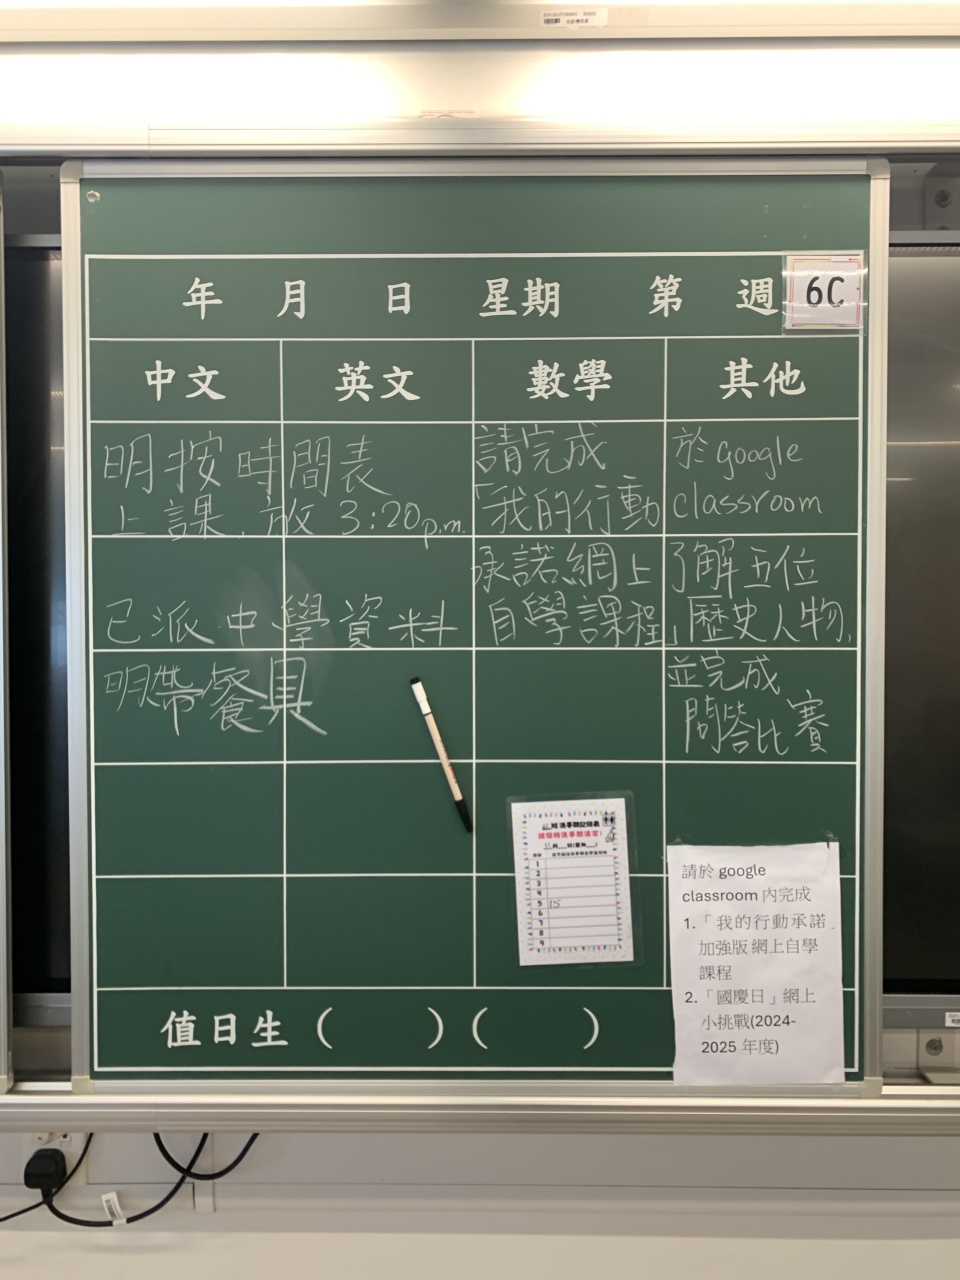 年 月 日 星期 第 週 6C
中文 英文 數學 其他
明按時間表
上課,放3:20p.m.
已派中學資料
明帶餐具
請完成
「我的行動
承諾網上
自學課程」
於google
classroom
了解五位
歷史人物,
並完成
問答比賽
1
2
3
4
5 15
6
7
8
9
請於 google
classroom 內完成
1.「我的行動承諾
加強版網上自學
課程
2.「國慶日」網上
小挑戰(2024-
2025 年度)
值日生( )( )